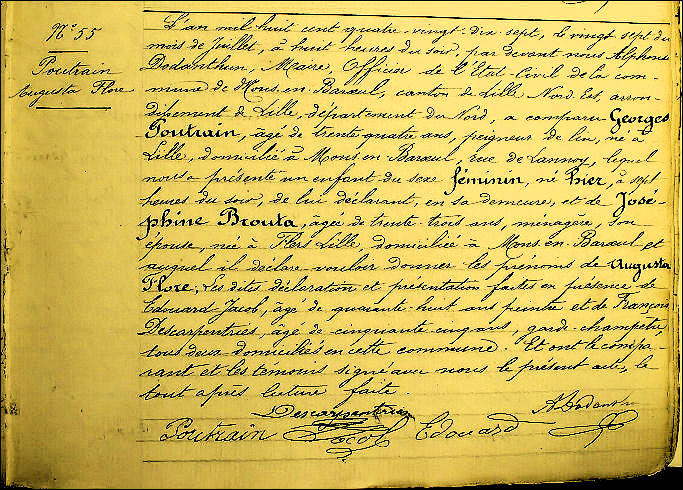 N° 55
Poutrain
Augusta Flore
L'an mil huit cent quatre-vingt-dix-sept, le vingt sept du
mois de Juillet, à huit heures du soir, par devant nous Alphonse
Dodanthun, Maire, Officier de l'Etat-Civil de la com-
mune de Mons-en-Barœul, canton de Lille Nord-Est, arron-
dissement de Lille, département du Nord, a comparu Georges
Poutrain, âgé de trente quatre ans, peigneur de lin, né à
Lille, domicilié à Mons-en-Barœul, rue de Lannoy, lequel
nous a présenté un enfant du sexe féminin, né hier, à sept
heures du soir, de lui déclarant, en sa demeure, et de José-
phine Brouta, âgée de trente trois ans, ménagère, son
épouse, née à Flers Lille, domiciliée à Mons-en-Barœul et
auquel il déclare vouloir donner les prénoms de Augusta
Flore; Les dites déclaration et présentation faites en présence de
Edouard Jacob, âgé de quarante huit ans peintre et de François
Descarpentries, âgé de cinquante cinq ans, garde-champêtre,
tous deux domiciliés en cette commune. Et ont le compa-
rant et les témoins signé avec nous le présent acte, le
tout après lecture faite.
Descarpentries
Poutrain Jacob Edouard